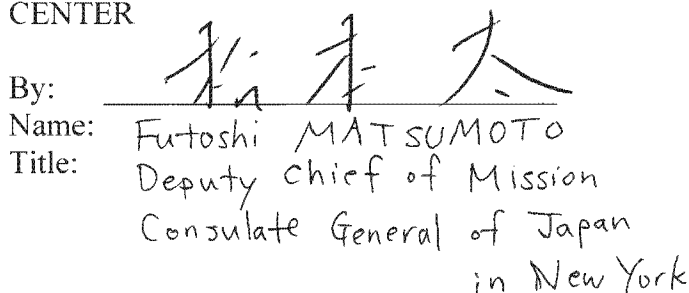 CENTER
By: 松本太
Name: Futoshi MATSUMOTO
Title: Deputy Chief of Mission
Consulate General of Japan
in New York